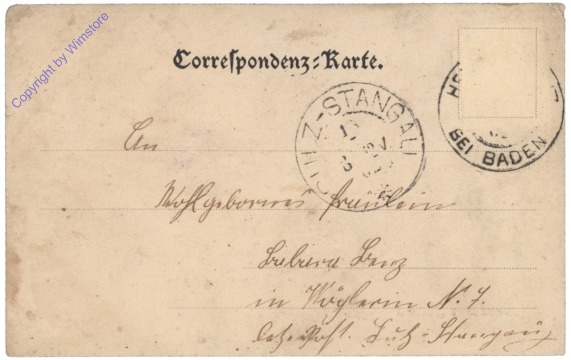 Copyright by Wimstore
Correspondenz-Karte.
SULZ-STANGAU
HE
BEI BADEN
An
Wohlgebornes Fräulein
Barbara Benz
in Wöglerin N. 7.
letzte Post. Sulz-Stangau